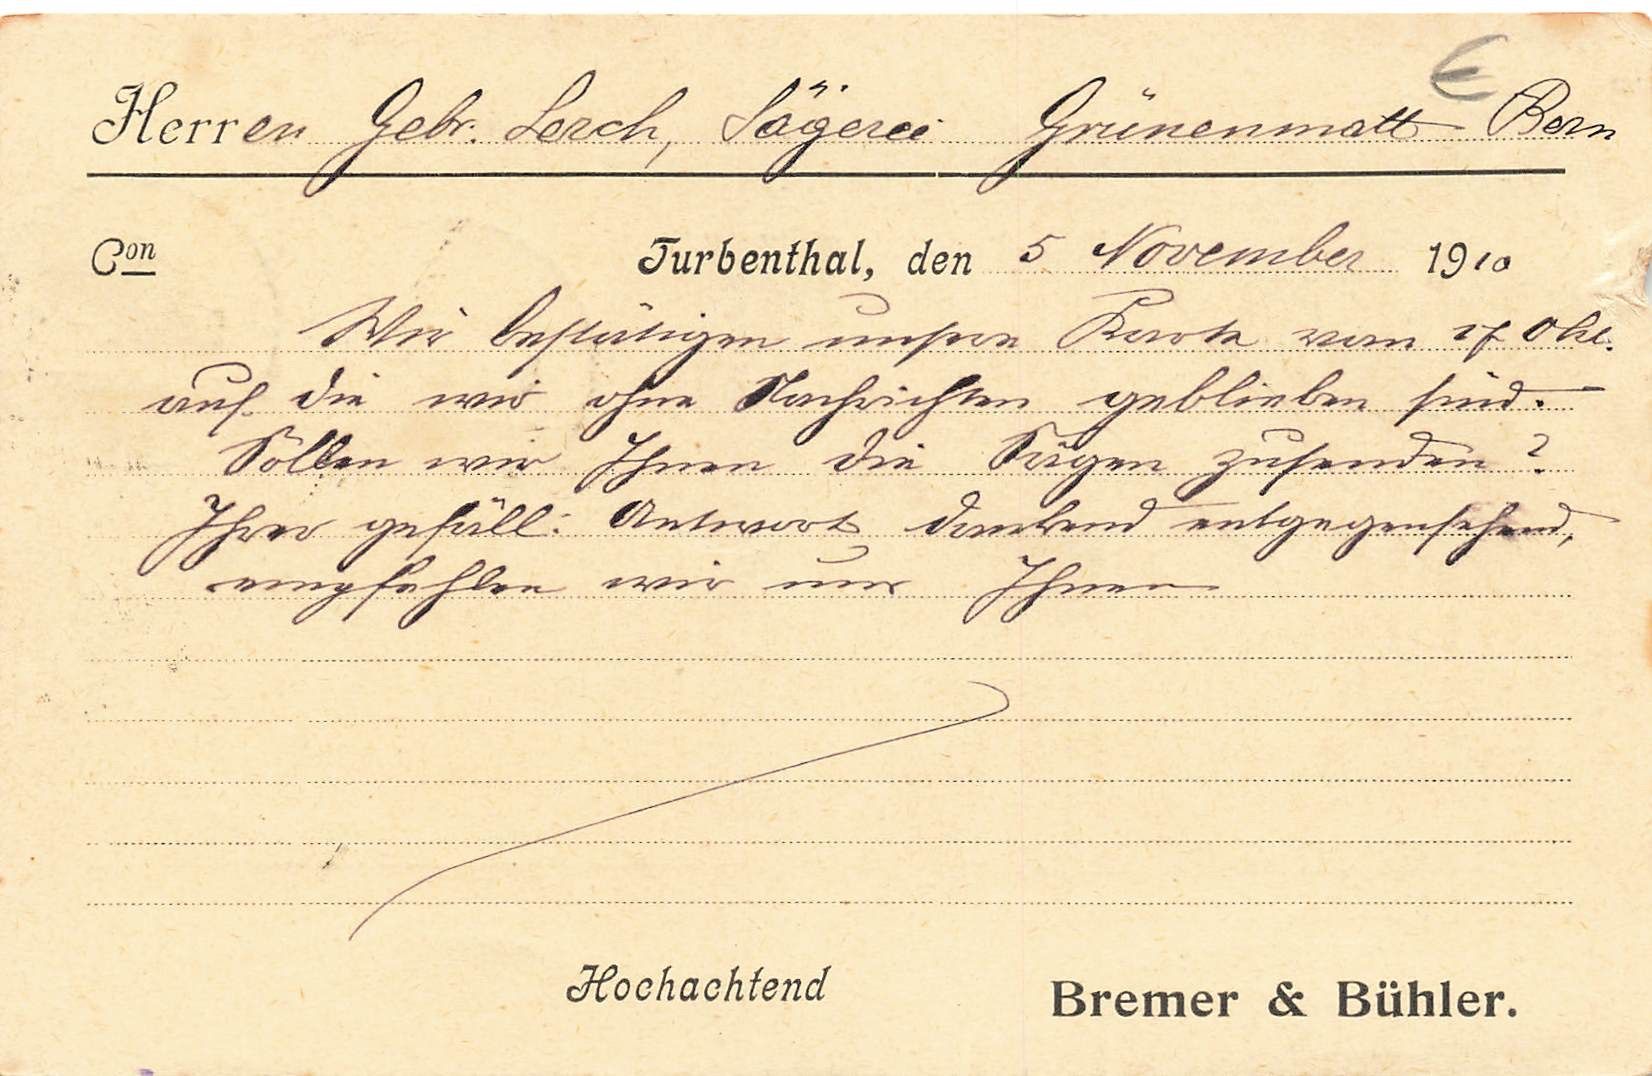 Herren Gebr. Lerch, Sägerei Grünenmatt Bern
Con
Turbenthal, den 5 November 1910
Wir bestätigen unsere Karte vom 17 Okt.
auf die wir ohne Nachrichten geblieben sind.
Sollen wir Ihnen die Sägen zusenden?
Ihrer gefäll. Antwort dankend entgegensehend,
empfehlen wir uns Ihnen
Hochachtend
Bremer & Bühler.